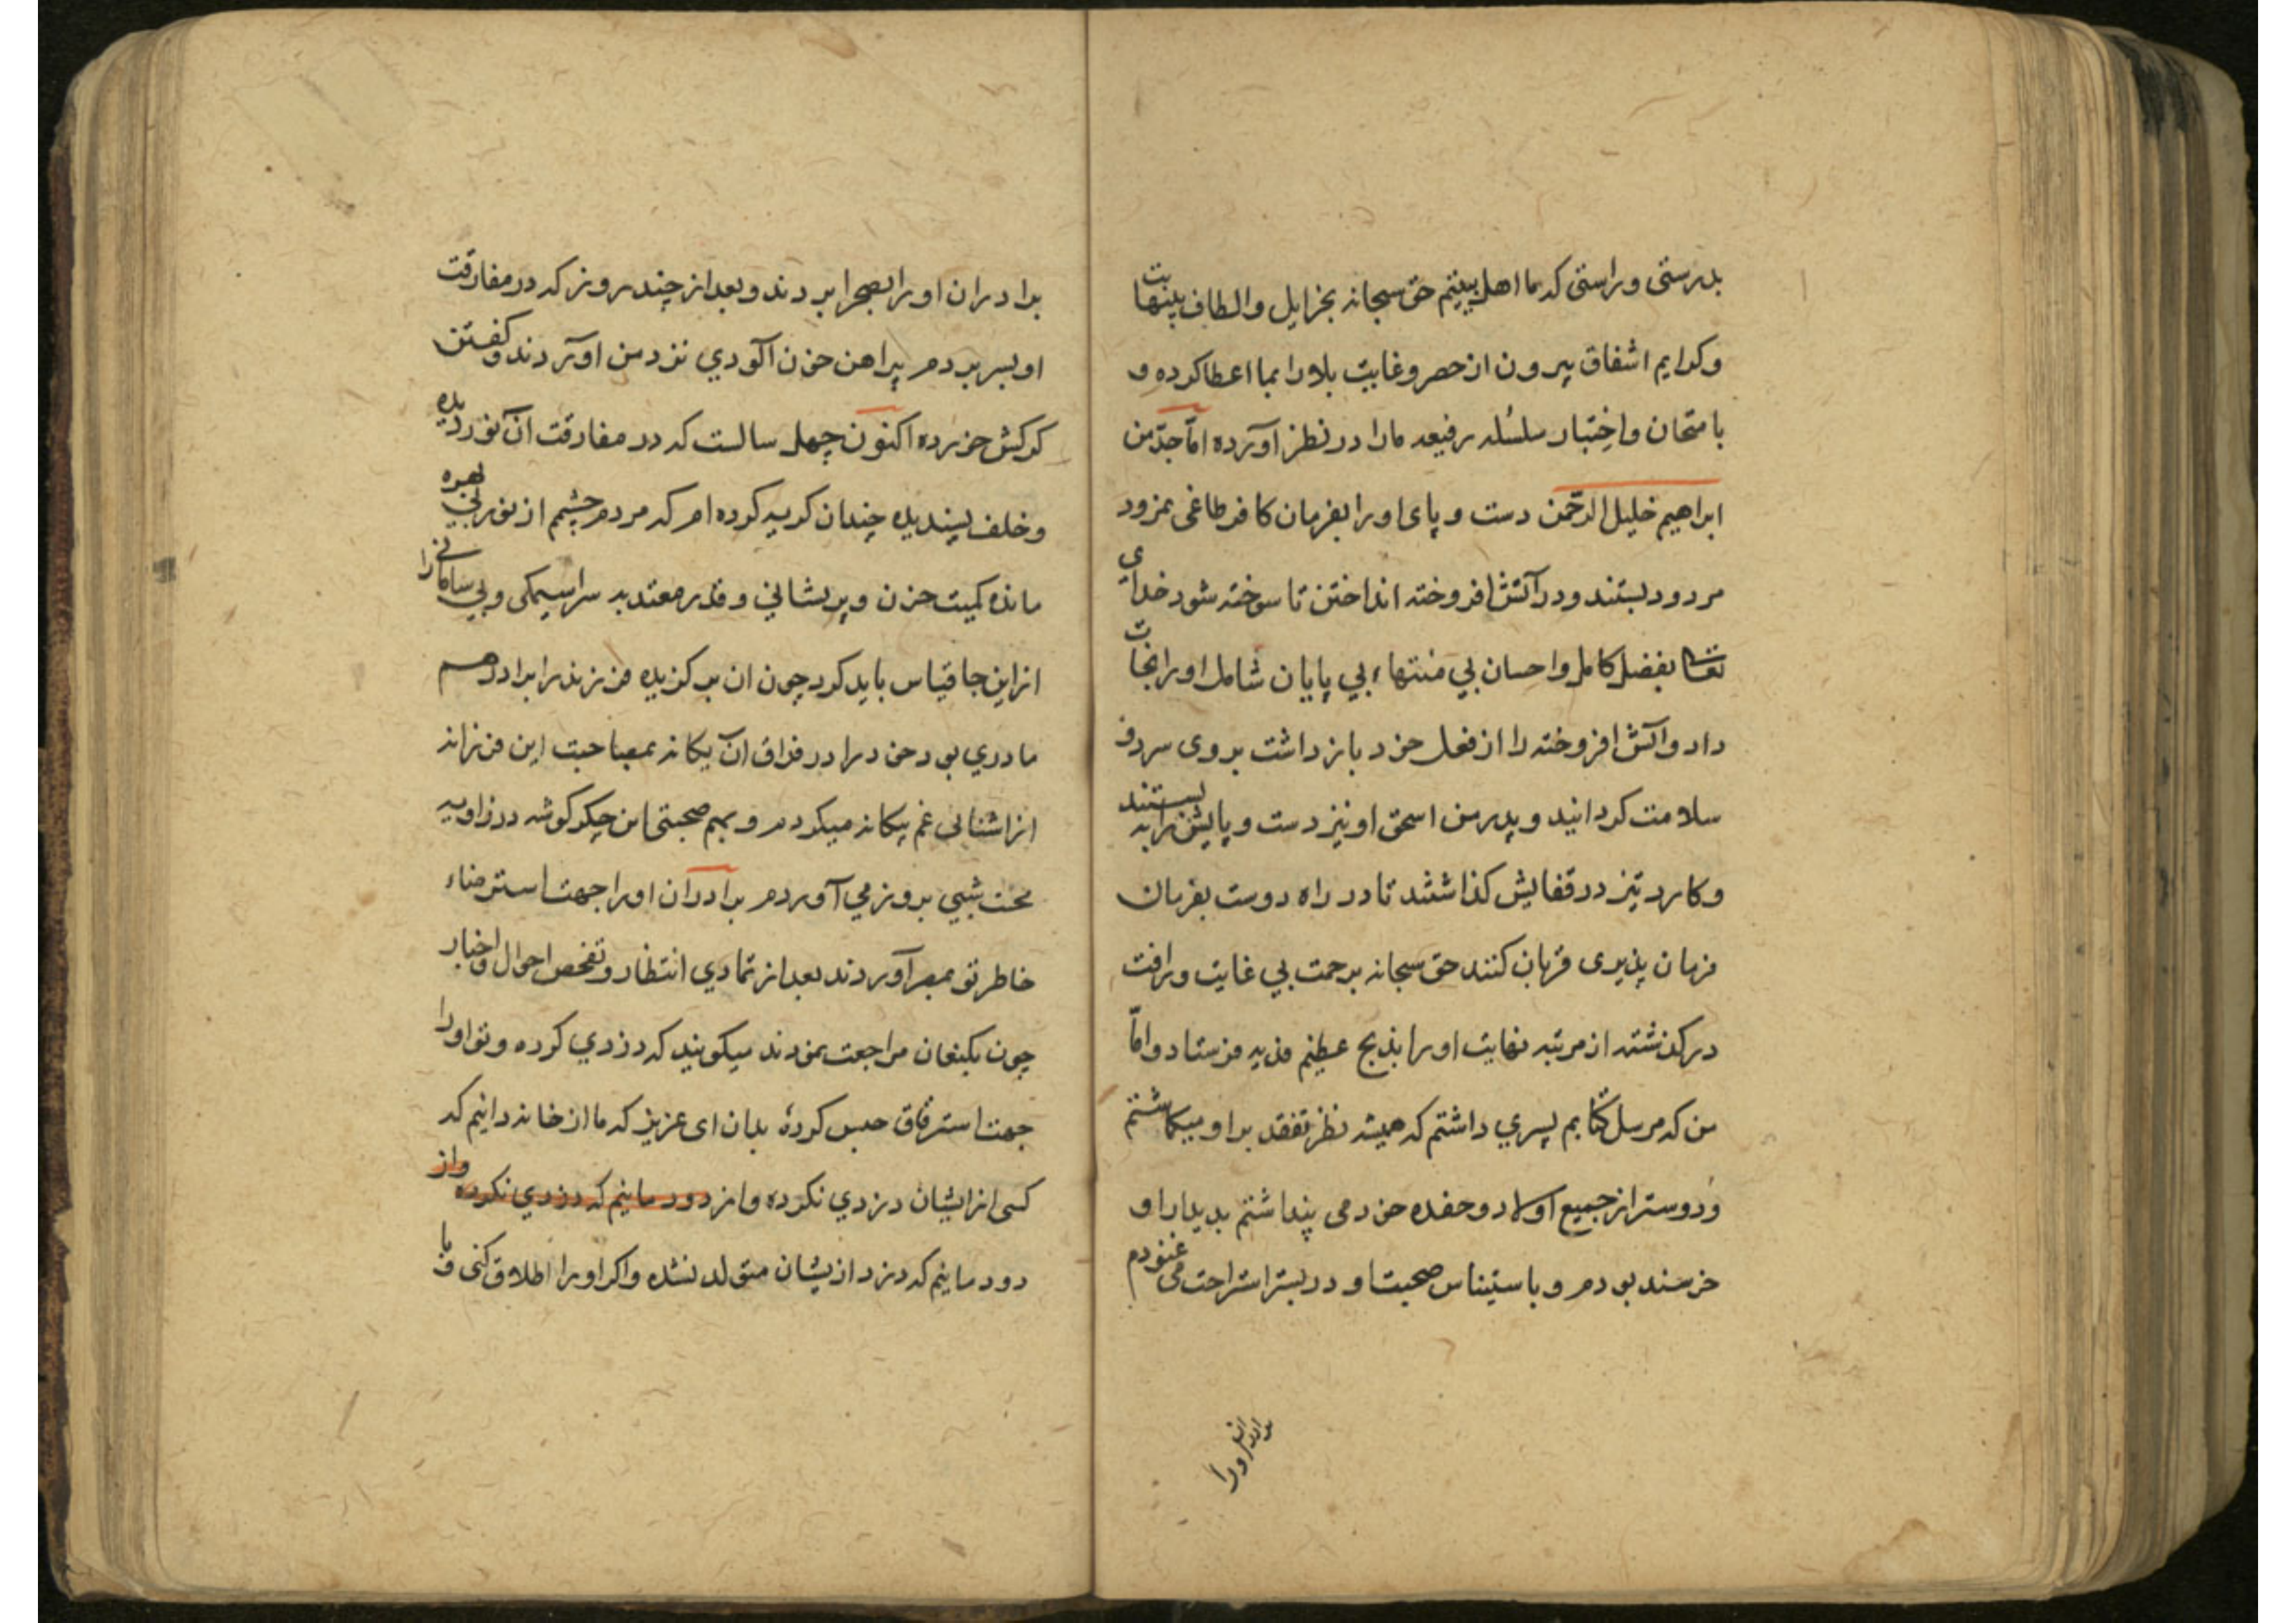 بدرستی و راستی که ما اهل بیتیم حق سبحانه بجزایل والطاف بینهایت
وکرایم اشفاق بیرون از حصر و غایت بلا را بما اعطا کرده و
بامتحان واختبار سلسله رفیعه مارا در نظر آورده امّا جدّ من
ابراهیم خلیل الرحمن دست و پای اورا بفرمان کافر طاغی نمرود
مردود بستند ودر آتش افروخته انداختن تا سوخته شود خدای
تعالی بفضل کامل واحسان بي منتهاء بي پایان شامل اورا نجات
داد وآتش افروخته را از فعل خود باز داشت بروی سرد و
سلامت کردانید و پدر من اسحق او نیز دست و پایش را به بستند
وکارد تیز در قفایش کذاشتند تا در راه دوست بفرمان
فرمان پذیری قربان کنند حق سبحانه برحمت بي غایت ورافت
درکذشته از مرتبه نهایت اورا بذبح عظیم فدیه فرستاد وامّا
من که مرسل کتابم پسري داشتم که همیشه نظر تفقد بر او میکماشتم
ودوستر از جمیع اولاد وحفده خود می پنداشتم بدیدار او
خرسند بودم و باستیناس صحبت او در بستر استراحت می غنودم
برادران اورا
برادران اورا بصحرا بردند و بعد از چند روز که در مفارقت
او بسر بردم پیراهن خون آلودي نزد من آوردند و کفتن
کرکش خورده اکنون چهل سالست که در مفارقت آن نور دیده
وخلف پسندیده چندان کریه کرده ام که مردم چشم از نور بي بهره
مانده کمیت حزن و پریشاني و قدر معتد به سراسیمکی و بي سامانی را
از این جا قیاس باید کرد چون ان برکزیده فرزند را برادر هم
مادري بود خود را در فراق آن یکانه بمصاحبت این فرزانه
از اشنایی غم بیکانه میکردم و بهم صحبتی این جکر کوشه در زاویه
محنت شبي بروز مي آوردم برادران اورا جهت استرضاء
خاطر تو بمصر آوردند بعد از تمادي انتظار و تفحص احوال و اخبار
چون بکنعان مراجعت نمودند میکویند که دزدي کرده و تو اورا
جهت استرقاق حبس کردهٔ بدان ای عزیز که ما از خاندانیم که
کسی از ایشان دزدي نکرده و از دودمانیم که دزدي نکرده و از
دودمانیم که دزد از یشان متولد نشده واکر اورا اطلاق کنی و با